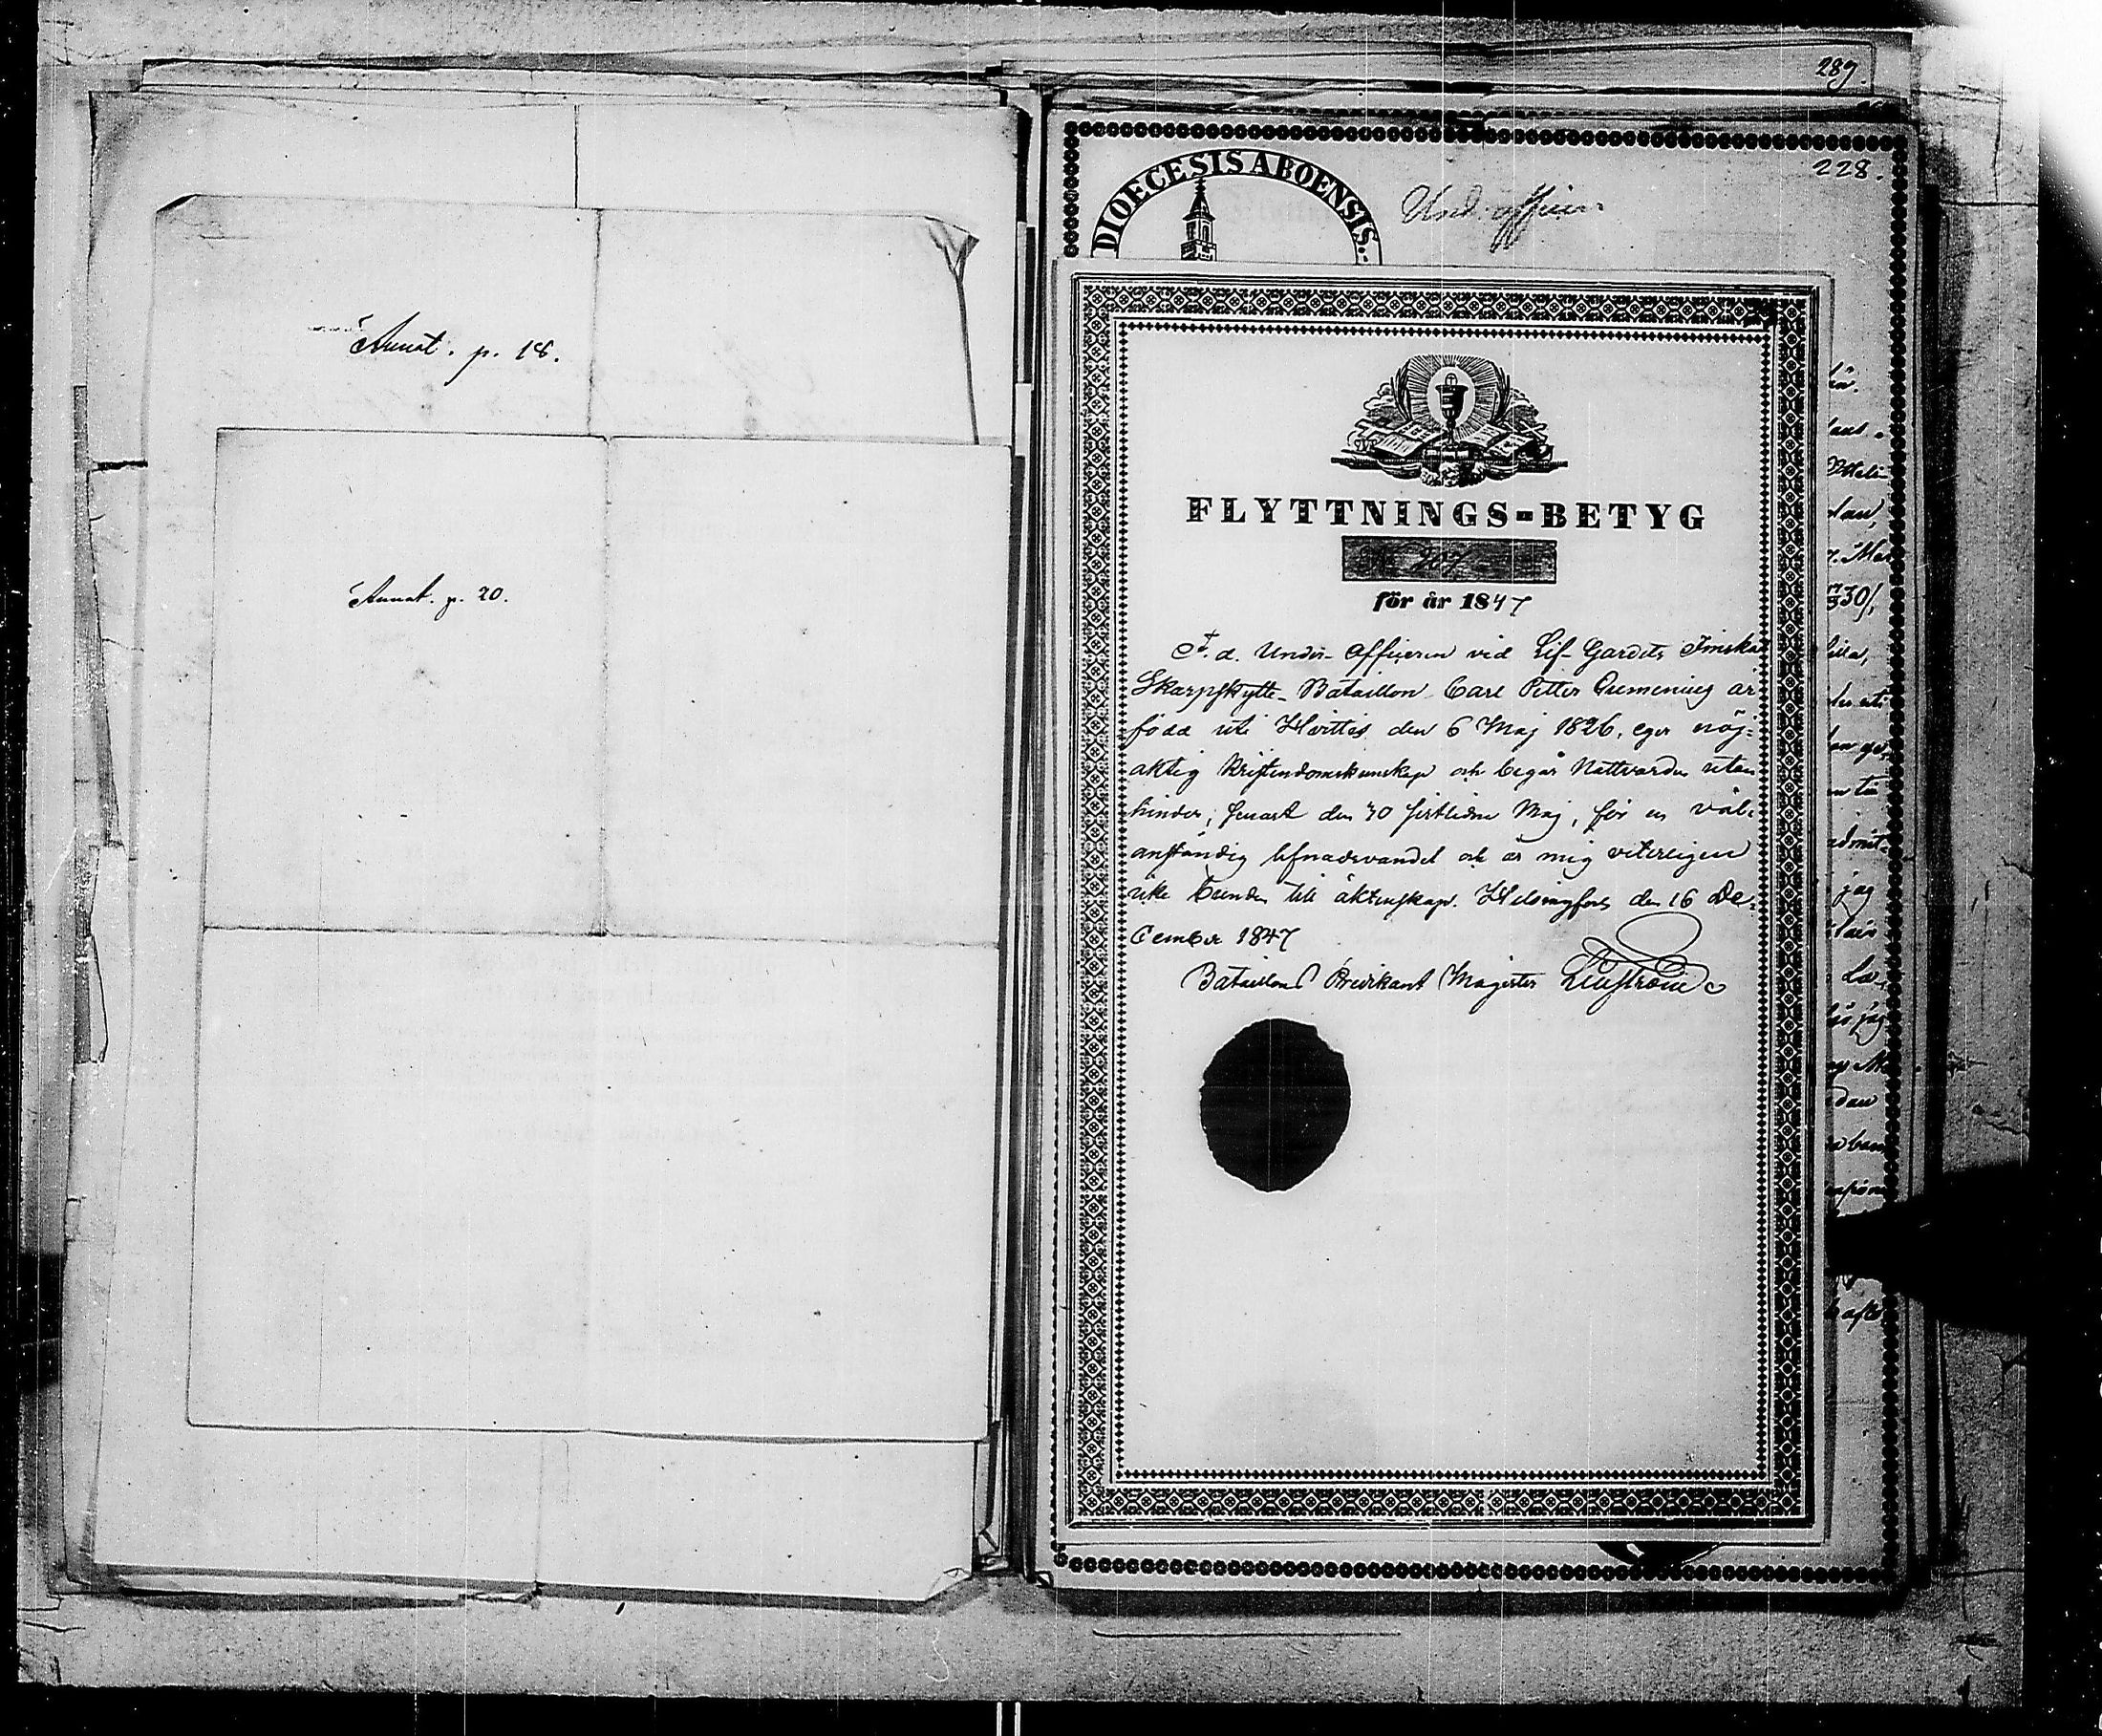 Annot. p. 18.
Annot. p. 20.
289.
228.
DIOECESIS ABOENSIS.
Und. officer
FLYTTNINGS-BETYG
207
för år 1847
F. d. Under-Officeren vid Lif-Gardets Finska
Skarpskytte-Bataillon Carl Petter är
född uti Hvittis den 6 Maj 1826, eger nöj-
aktig kristendomskunskap och begår Nattvarden utan
hinder, senast den 30 sistlidne Maj, för en väl-
anständig lefnadsvandel och är mig veterligen
icke bunden till äktenskap. Helsingfors den 16 De-
cember 1847
Bataillons Predikant Magister
30/
jag